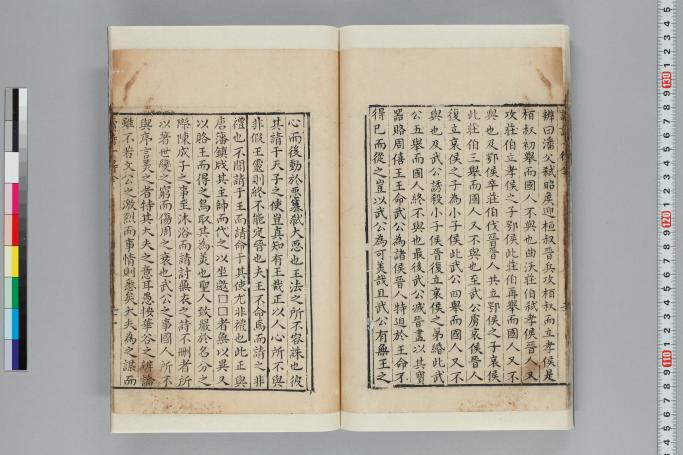 辨曰潘父弑昭侯迎桓叔晉兵攻桓叔而立孝侯是
桓叔初舉而國人不與也曲沃莊伯弑孝侯晉人又
攻莊伯立孝侯之子鄂侯此莊伯再舉而國人又不
與也及鄂侯卒莊伯伐晉晉人共立鄂侯之子哀侯
此莊伯三舉而國人又不與也至武公虜哀侯晉人
復立哀侯之子為小子侯此武公四舉而國人又不
與也及武公誘殺小子侯晉復立哀侯之弟緡此武
公五舉而國人終不與也最後武公滅晉盡以其寶
器賂周僖王王命武公為諸侯晉人特迫於王命不
得已而從之豈以武公為可美哉且武公有無王之
心而後動於惡簒弑大惡也王法之所不容誅也彼
其請于天子之使豈真知有王哉正以人心所不與
非假王靈則終不能定晉也夫王不命焉而請之非
禮也不聞請于王而請命于其使尤非禮也此正與
唐藩鎮戕其主帥而代之以坐邀 者無以異又
以賂王而得之烏取其為美也聖人致嚴於名分之
際陳成子之事至沐浴而請討無衣之詩不刪者所
以著世變之窮而傷周之衰也武公之事國人所不
與序言美之者特其大夫之意耳愚按華谷之辨論
雖不若文公之激烈而事情則悉矣大夫為之謀而